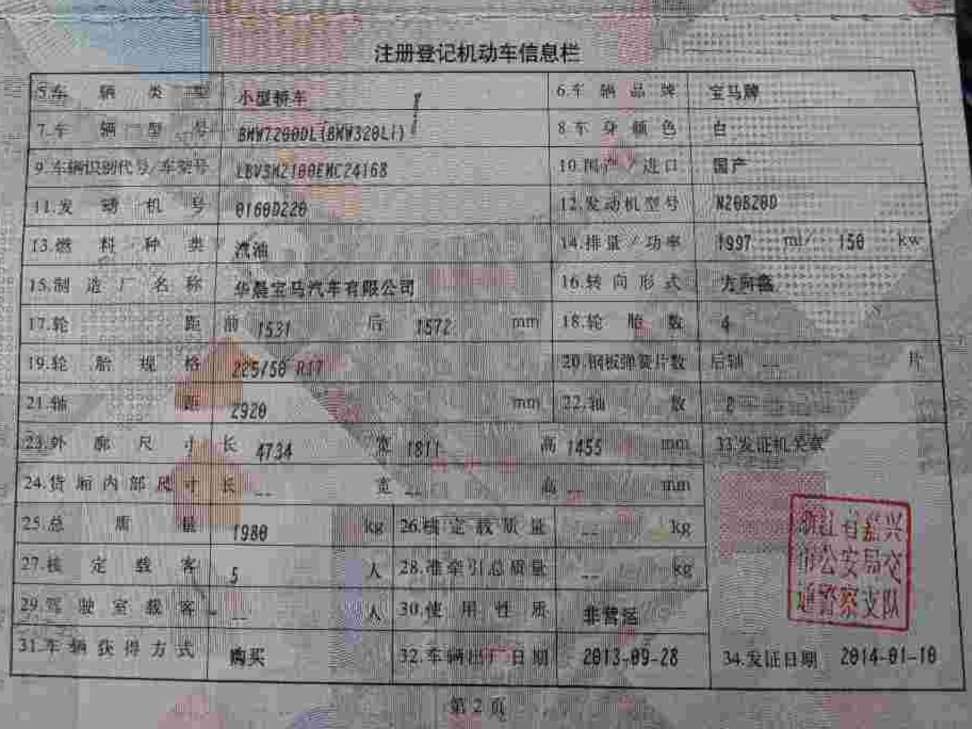 注册登记机动车信息栏
5.车辆类型 小型轿车 6.车辆品牌 宝马牌
7.车辆型号 BMW7200DL(BMW320Li) 8.车身颜色 白
9.车辆识别代号/车架号 LBV3M2100EMC24168 10.国产/进口 国产
11.发动机号 0160D220 12.发动机型号 N20B20D
13.燃料种类 汽油 14.排量/功率 1997 ml/ 150 kw
15.制造厂名称 华晨宝马汽车有限公司 16.转向形式 方向盘
17.轮距 前 1531 后 1572 mm 18.轮胎数 4
19.轮胎规格 225/50 R17 20.钢板弹簧片数 后轴 -- 片
21.轴距 2920 mm 22.轴数 2
23.外廓尺寸 长 4734 宽 1811 高 1455 mm 33.发证机关章
24.货厢内部尺寸 长 -- 宽 -- 高 -- mm
25.总质量 1980 kg 26.核定载质量 -- kg
27.核定载客 5 人 28.准牵引总质量 -- kg
浙江省嘉兴
市公安局交
通警察支队
29.驾驶室载客 -- 人 30.使用性质 非营运
31.车辆获得方式 购买 32.车辆出厂日期 2013-09-28 34.发证日期 2014-01-10
第2页